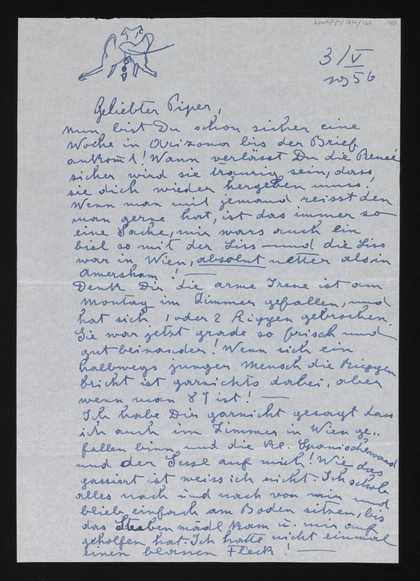 3/V
1956
Geliebter Piper,
nun bist Du schon sicher eine
Woche in Arizona bis der Brief
ankommt! Wann verlässt Du die Reneé
sicher wird sie traurig sein, dass
sie dich wieder hergeben muss,
Wenn man mit jemand reisst den
man gerne hat, ist das immer so
eine Sache, mir wars auch ein
biel so mit der Liss — und die Liss
war in Wien, absolut netter als in
Amersham! —
Denk Dir die arme Irene ist am
Montag im Zimmer gefallen, und
hat sich 1 oder 2 Rippen gebrochen.
Sie war jetzt grade so frisch und
gut beinander! Wenn sich ein
halbwegs junger Mensch die Rippen
bricht ist garnichts dabei, aber
wenn man 87 ist! —
Ich habe Dir garnicht gesagt dass
ich auch im Zimmer in Wien ge-
fallen binn und die kl. Spanischewand
und der Sessl auf mich! Wie das
passiert ist weiss ich nicht. Ich schob
alles nach und nach von mir und
blieb einfach am Boden sitzen, bis
das Stubenmädl kam u. mir auf
geholfen hat. Ich hatte nicht einmal
einen blauen Fleck! —